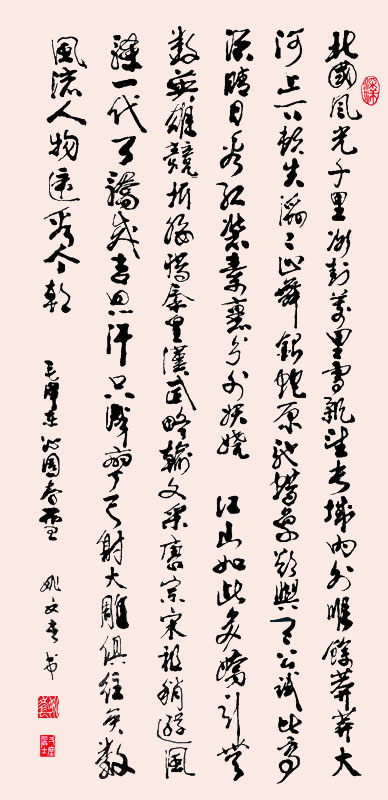 北國风光千里冰封萬里雪飄望長城內外唯餘莽莽大
河上下頓失滔〻山舞銀蛇原馳蠟象欲與天公試比高
須晴日看紅裝素裹分外妖嬈 江山如此多嬌引無
數英雄競折腰惜秦皇漢武略輸文采唐宗宋祖稍遜風
騷一代天驕成吉思汗只識彎弓射大雕俱往矣數
風流人物還看今朝
毛澤東沁園春雪 姚文 书